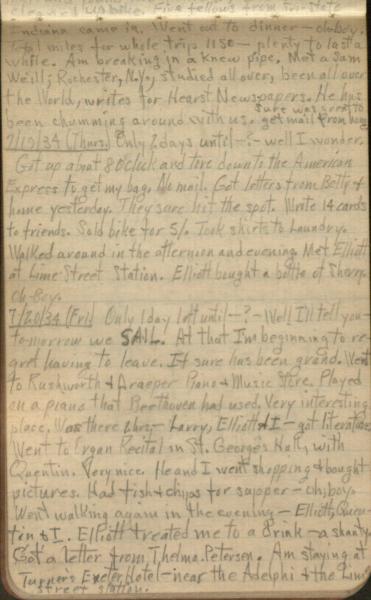 cleaned up bike. Five fellows from Tri-state
Indiana came in. Went out to dinner - oh boy.
Total miles for whole trip: 1150 - plenty to last a
while. Am breaking in a knew pipe. Met a Sam
Weill; Rochester, N.Y.; studied all over, been all over
the World, writes for Hearst Newspapers. He has
been chumming around with us. Sure was swell to
get mail from home
7/19/34 (Thurs.) Only 2 days until - ? - well I wonder.
Got up about 8 O'clock and tore down to the American
Express to get my bag. No mail. Got letters from Betty &
home yesterday. They sure hit the spot. Write 14 cards
to friends. Sold bike for 5/. Took shirts to Laundry.
Walked around in the afternoon and evening. Met Elliott
at Lime Street Station. Elliott bought a bottle of Sherry.
Oh Boy.
7/20/34 (Fri) Only 1 day left until - ? - Well I'll tell you -
tomorrow we SAIL. At that I'm beginning to re-
gret having to leave. It sure has been grand. Went
to Rushworth & Draeper Piano & Music Store. Played
on a piano that Beethoven had used. Very interesting
place. Was there 2 hrs; - Larry, Elliott & I - got literature.
Went to Organ Recital in St. George's Hall, with
Quentin. Very nice. He and I went shopping & bought
pictures. Had fish & chips for supper - oh, boy.
Went walking again in the evening - Elliott, Quen-
tin & I. Elliott treated me to a drink - a shanty.
Got a letter from Thelma Petersen. Am staying at
Turners Exeter Hotel - near the Adelphi & the Lime
street station.